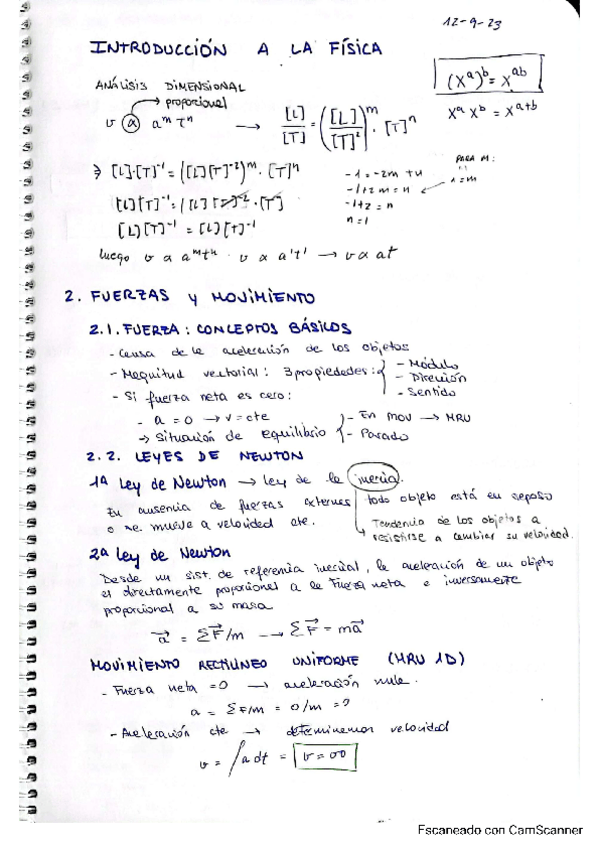 12-9-23
INTRODUCCIÓN A LA FÍSICA
(x^a)^b = x^ab
x^a x^b = x^a+b
ANÁLISIS DIMENSIONAL
→ proporcional
v ∝ a^m T^n → [L]/[T] = ([L]/[T]²)^m · [T]^n
⇒ [L]·[T]⁻¹ = ([L][T]⁻²)^m · [T]^n
- 1 = -2m + n
- 1+2m = n
- 1+2 = n
n = 1
PARA M:
1 = m
[L][T]⁻¹ = [L][T]⁻² · [T]
[L][T]⁻¹ = [L][T]⁻¹
luego v ∝ a^m t^n v ∝ a¹t¹ → v ∝ at
2. FUERZAS Y MOVIMIENTO
2.1. FUERZA: CONCEPTOS BÁSICOS
- Causa de la aceleración de los objetos
- Magnitud vectorial: 3 propiedades:
- Módulo
- Dirección
- Sentido
- Si fuerza neta es cero:
- a = 0 → v = cte
→ Situación de equilibrio
- En mov → MRU
- Parado
2.2. LEYES DE NEWTON
1ª Ley de Newton → ley de la inercia.
En ausencia de fuerzas externas todo objeto está en reposo
o se mueve a velocidad cte.
Tendencia de los objetos a
resistirse a cambiar su velocidad.
2ª Ley de Newton
Desde un sist. de referencia inercial, la aceleración de un objeto
es directamente proporcional a la fuerza neta e inversamente
proporcional a su masa
a⃗ = ΣF⃗/m → ΣF⃗ = ma⃗
MOVIMIENTO RECTILÍNEO UNIFORME (MRU 1D)
- Fuerza neta = 0 → aceleración nula.
a = ΣF/m = 0/m = 0
- Aceleración cte → determinemos velocidad
v = ∫a dt = v = v0
Escaneado con CamScanner